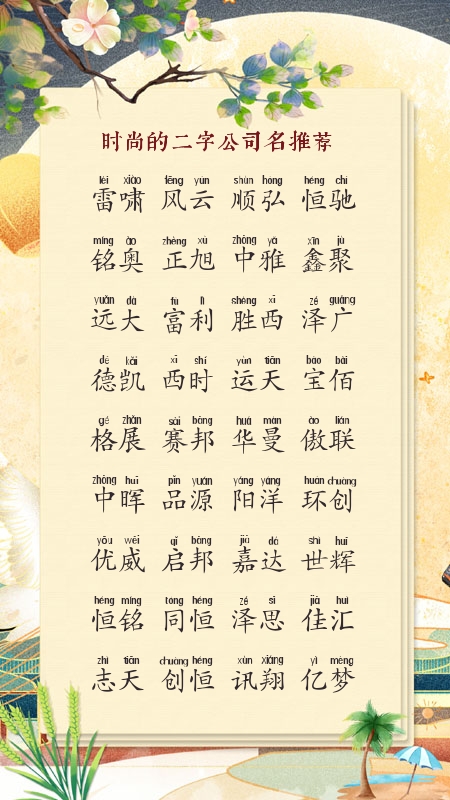 时尚的二字公司名推荐
léi xiào fēng yún shùn hóng héng chí
雷啸 风云 顺弘 恒驰
míng ào zhèng xù zhōng yǎ xīn jù
铭奥 正旭 中雅 鑫聚
yuǎn dà fù lì shèng xī zé guǎng
远大 富利 胜西 泽广
dé kǎi xī shí yùn tiān bǎo bǎi
德凯 西时 运天 宝佰
gé zhǎn sài bāng huá màn ào lián
格展 赛邦 华曼 傲联
zhōng huī pǐn yuán yáng yáng huán chuàng
中晖 品源 阳洋 环创
yōu wēi qǐ bāng jiā dá shì huī
优威 启邦 嘉达 世辉
héng míng tóng héng zé sī jiā huì
恒铭 同恒 泽思 佳汇
zhì tiān chuàng héng xùn xiáng yì mèng
志天 创恒 讯翔 亿梦